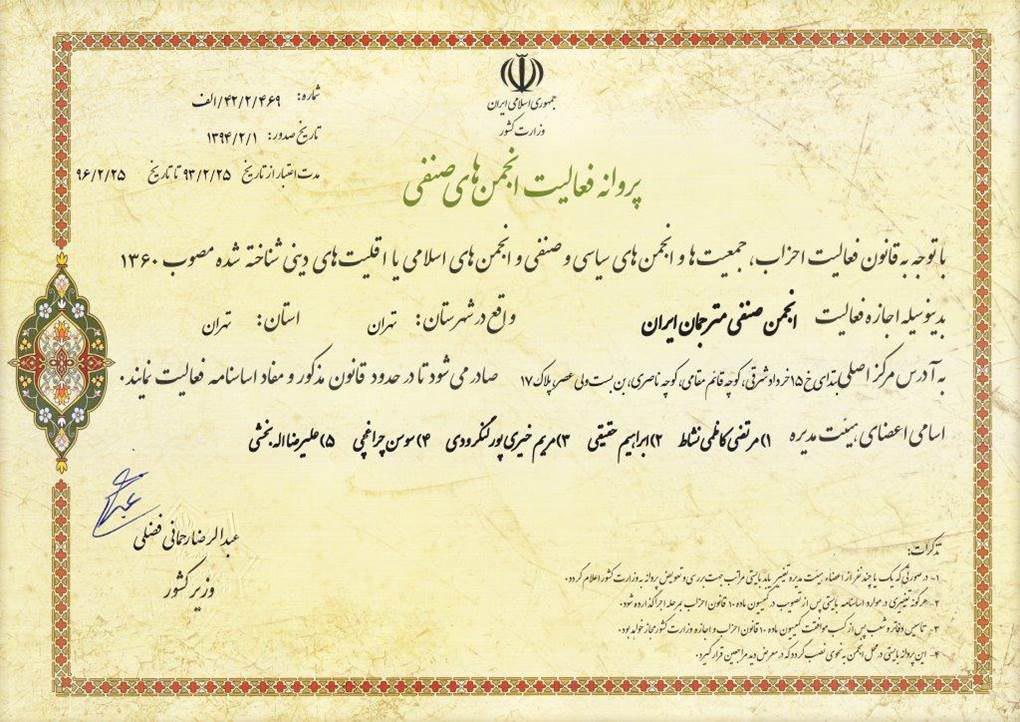 جمهوری اسلامی ایران
وزارت کشور
شماره: ۴۲/۲/۴۶۹/الف
تاریخ صدور: ۱۳۹۴/۲/۱
مدت اعتبار از تاریخ ۹۳/۲/۲۵ تا تاریخ ۹۶/۲/۲۵
پروانه فعالیت انجمن های صنفی
با توجه به قانون فعالیت احزاب، جمعیت ها و انجمن های سیاسی و صنفی و انجمن های اسلامی یا اقلیت های دینی شناخته شده مصوب ۱۳۶۰
بدینوسیله اجازه فعالیت انجمن صنفی مترجمان ایران واقع در شهرستان: تهران استان: تهران
به آدرس مرکز اصلی ابتدای خ ۱۵ خرداد شرقی، کوچه قائم مقامی، کوچه ناصری، بن بست ولی عصر، پلاک ۱۷ صادر می شود تا در حدود قانون مذکور و مفاد اساسنامه فعالیت نمایند.
اسامی اعضای هیئت مدیره ۱) مرتضی کاظمی نشاط ۲) ابراهیم حقیقی ۳) مریم خیری پور لنگرودی ۴) سوسن چراغچی ۵) علیرضا اله بخشی
عبدالرضا رحمانی فضلی
وزیر کشور
تذکرات:
۱- در صورتی که یک یا چند نفر از اعضاء هیئت مدیره تغییر یابد بایستی مراتب جهت بررسی و تعویض پروانه به وزارت کشور اعلام گردد.
۲- هرگونه تغییری در موارد اساسنامه بایستی پس از تصویب در کمیسیون ماده ۱۰ قانون احزاب بمرحله اجرا گذارده شود.
۳- تاسیس دفاتر و شعب پس از کسب موافقت کمیسیون ماده ۱۰ قانون احزاب و اجازه وزارت کشور مجاز خواهد بود.
۴- این پروانه بایستی در محل انجمن به نحوی نصب گردد که در معرض دید مراجعین قرار گیرد.